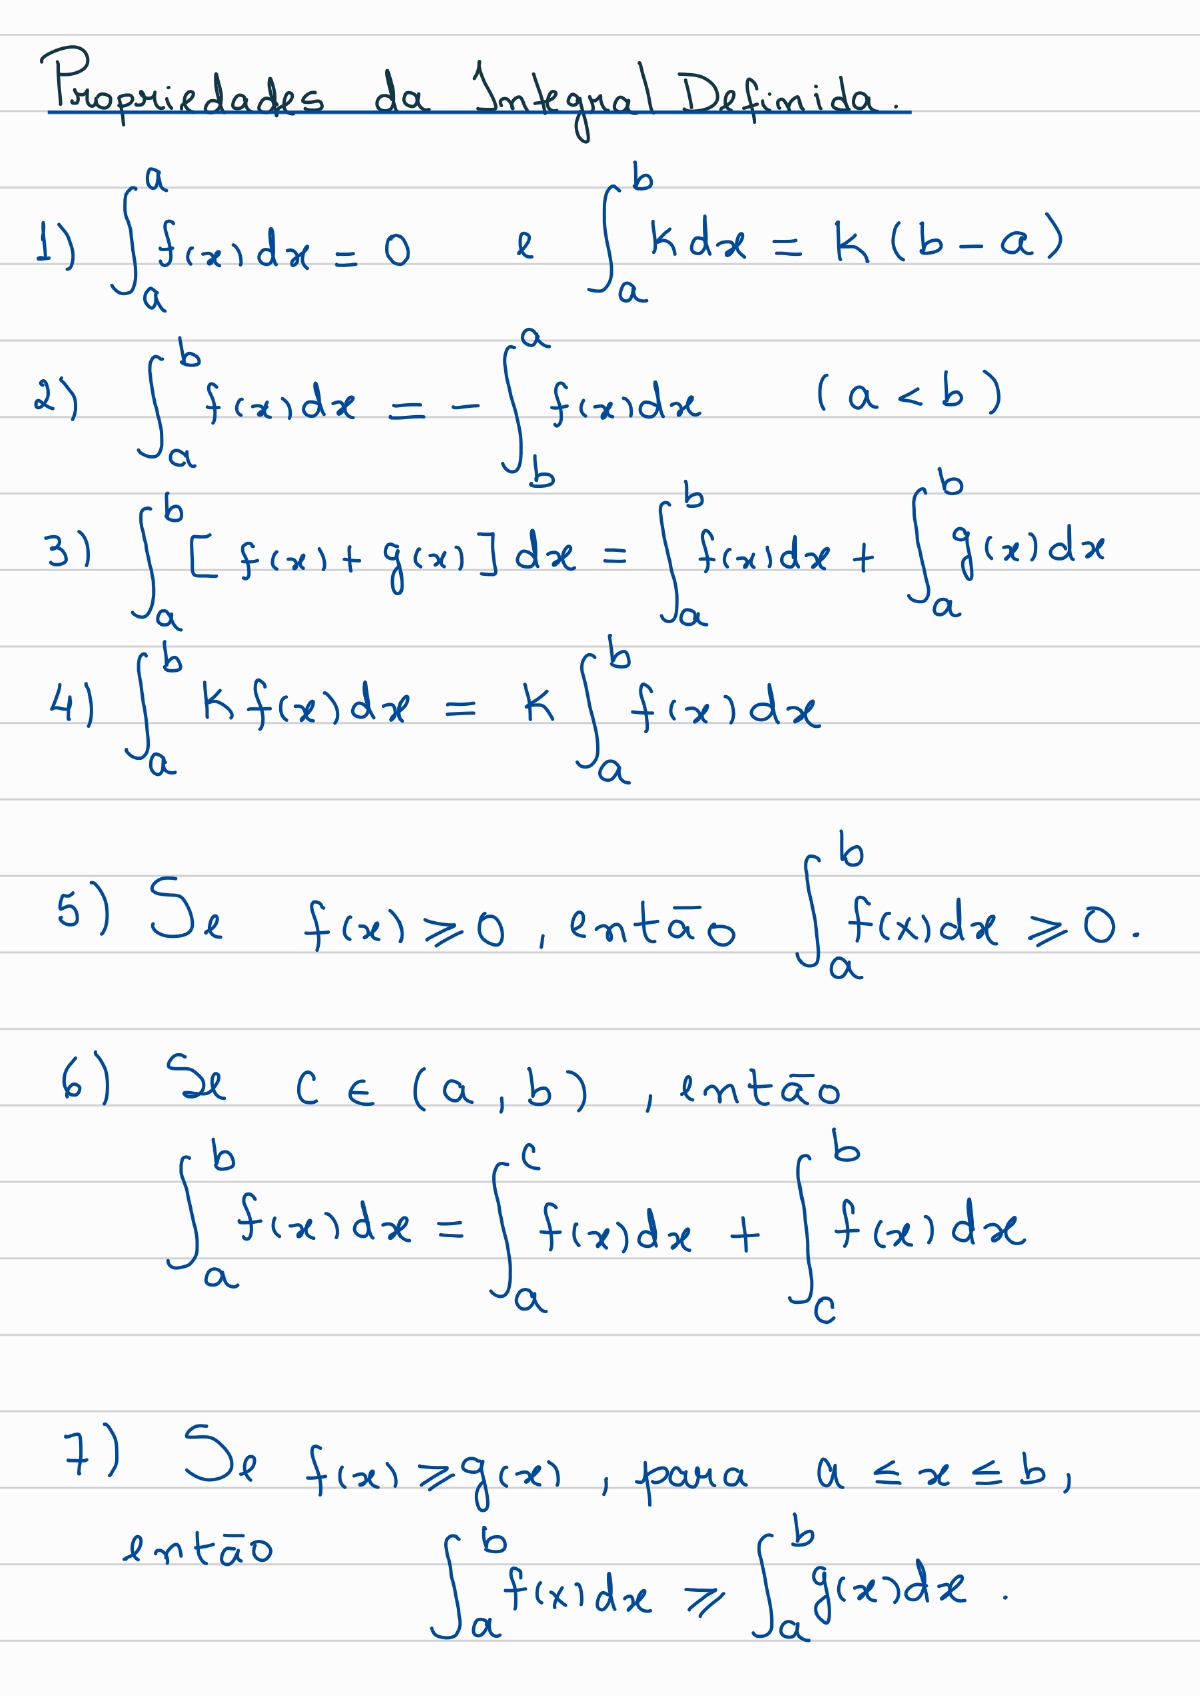 Propriedades da Integral Definida.
1) ∫_a^a f(x) dx = 0 e ∫_a^b K dx = K (b - a)
2) ∫_a^b f(x) dx = - ∫_b^a f(x) dx (a < b)
3) ∫_a^b [f(x) + g(x)] dx = ∫_a^b f(x) dx + ∫_a^b g(x) dx
4) ∫_a^b K f(x) dx = K ∫_a^b f(x) dx
5) Se f(x) ⩾ 0, então ∫_a^b f(x) dx ⩾ 0.
6) Se c ∈ (a, b), então
∫_a^b f(x) dx = ∫_a^c f(x) dx + ∫_c^b f(x) dx
7) Se f(x) ⩾ g(x), para a ≤ x ≤ b,
então ∫_a^b f(x) dx ⩾ ∫_a^b g(x) dx.